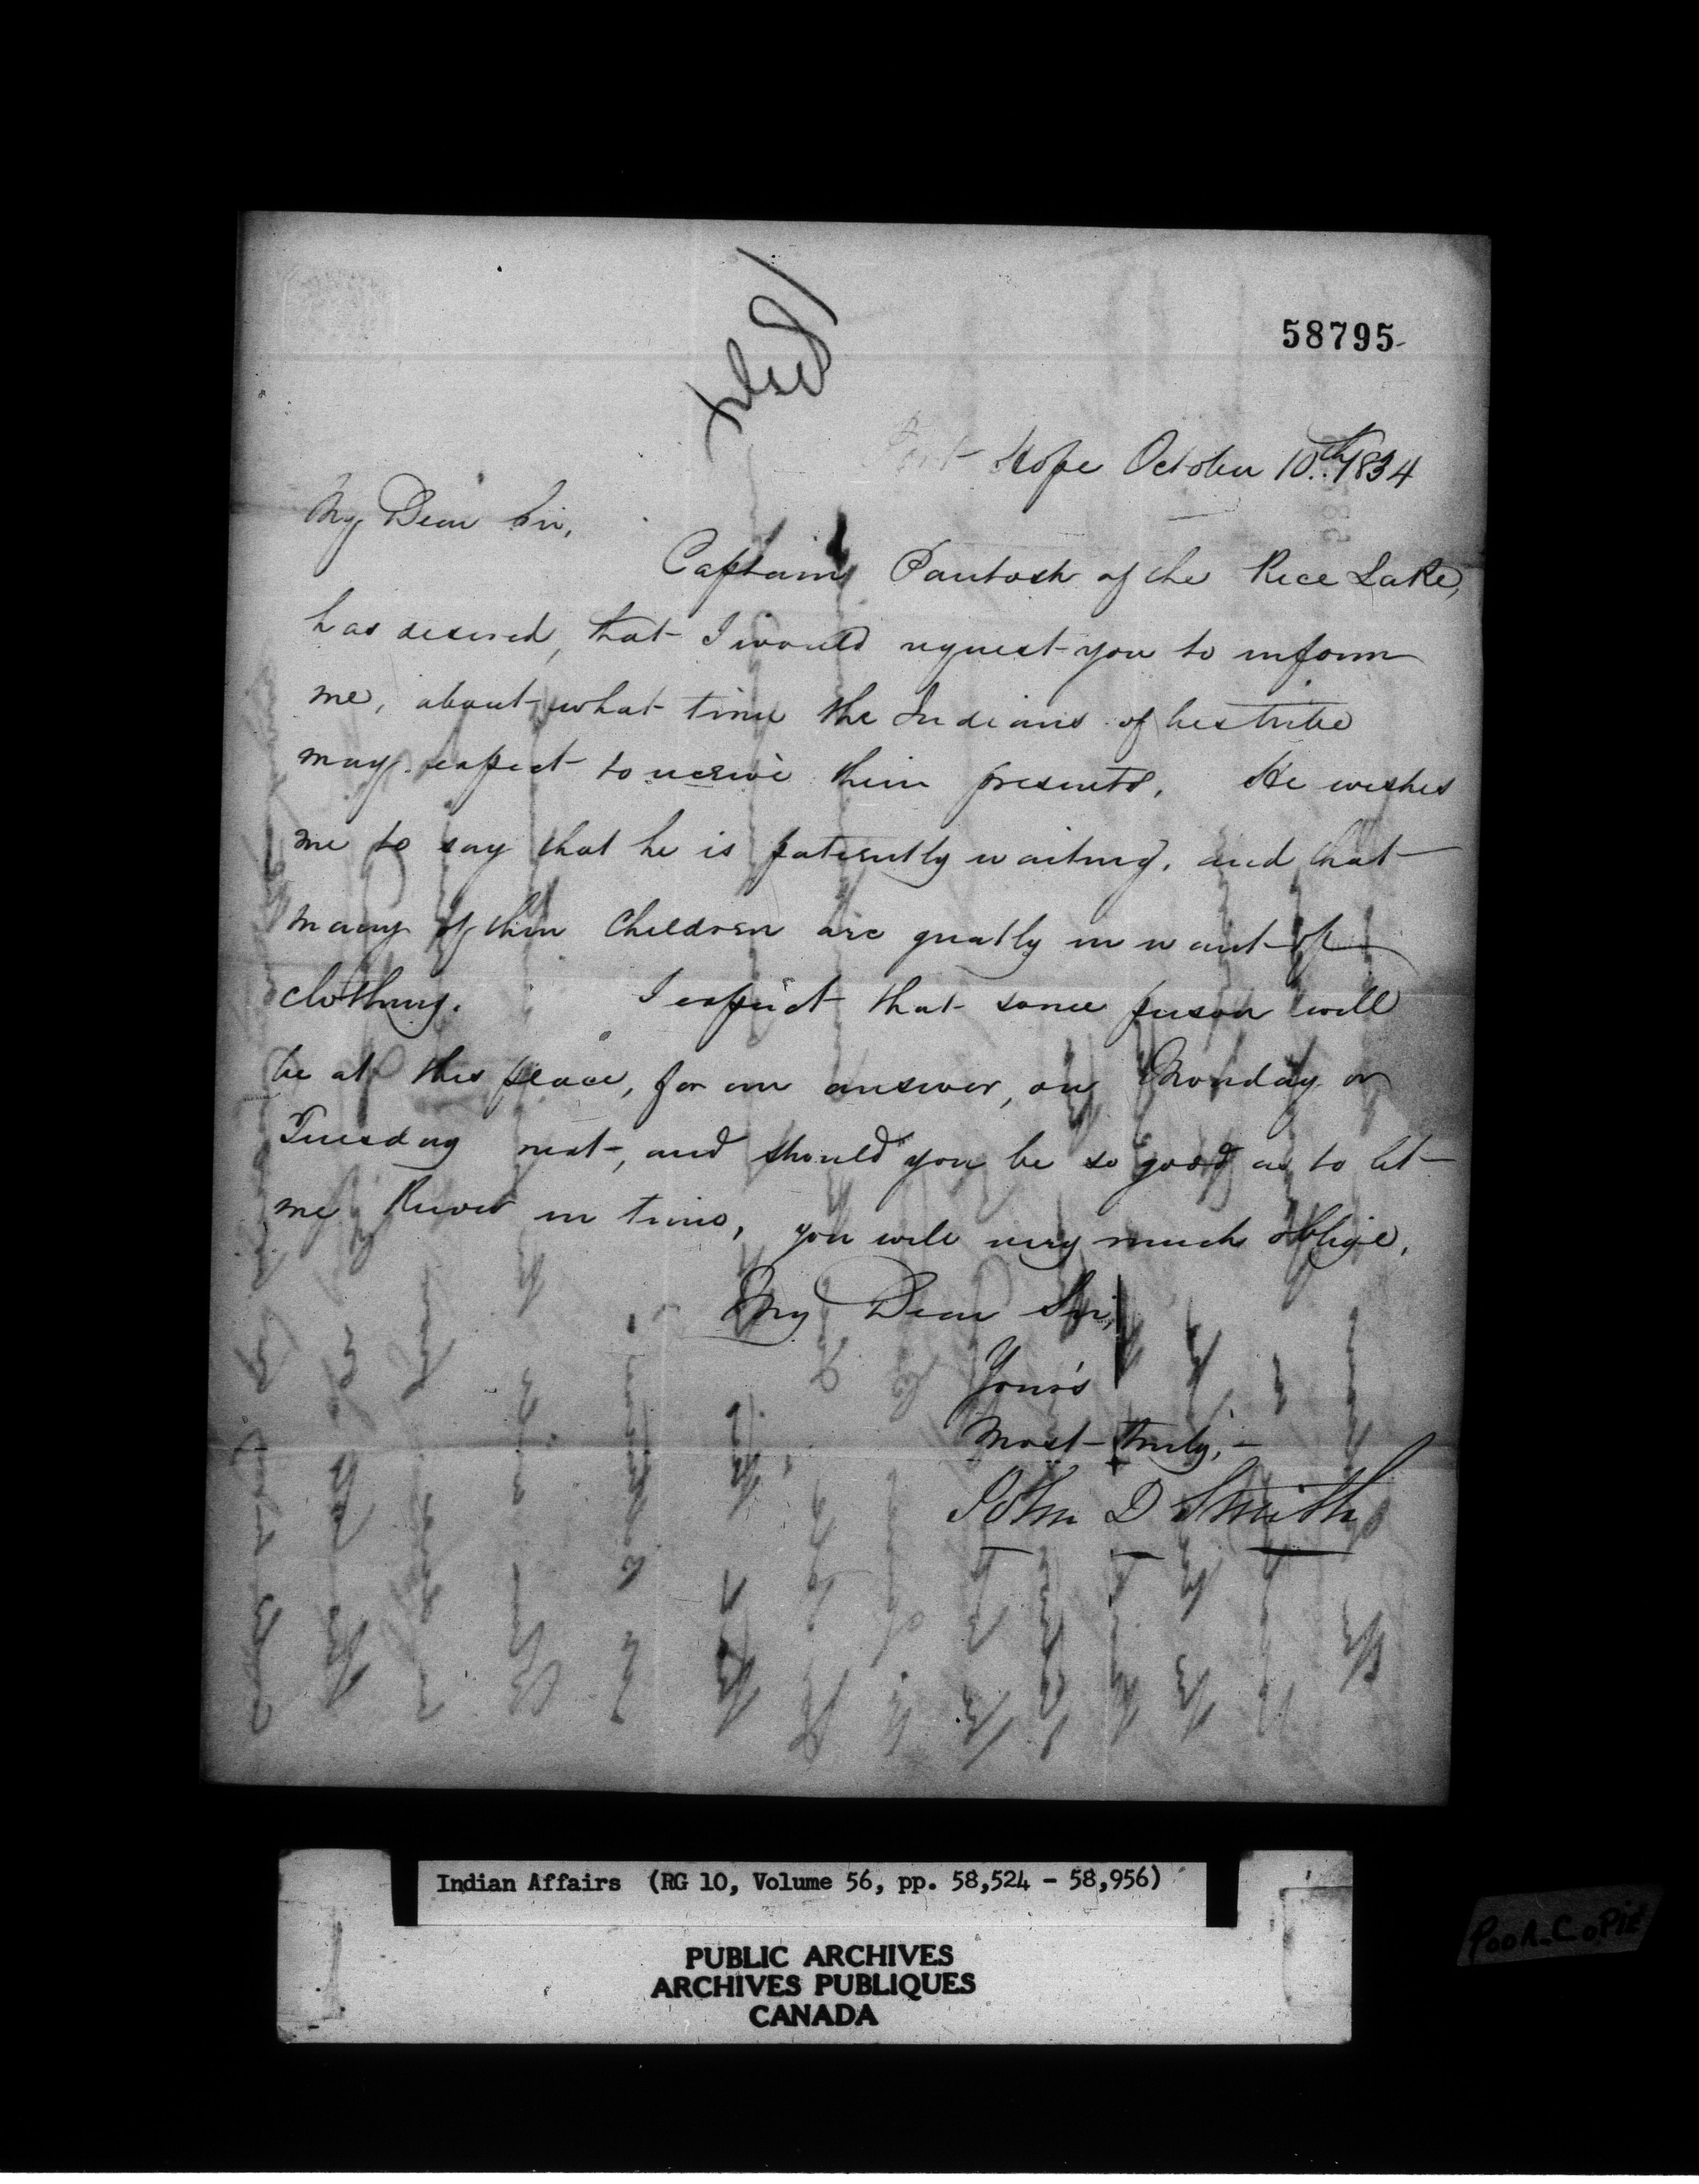 58795
Port Hope October 10th. 1834
My Dear Sir,
Captain Pautosh of the Rice Lake,
has desired, that I would request you to inform
me, about what time the Indians of his tribe
may expect to receive their presents. He wishes
me to say that he is patiently waiting, and that
many of their Children are greatly in want of
clothing. I expect that some person will
be at this place, for an answer, on Monday or
Tuesday next, and should you be so good as to let
me know in time, you will very much oblige,
My Dear Sir,
Your's
Most truly,
John D Smith
Indian Affairs (RG 10, Volume 56, pp. 58,524 - 58,956)
PUBLIC ARCHIVES
ARCHIVES PUBLIQUES
CANADA
Poor Copie